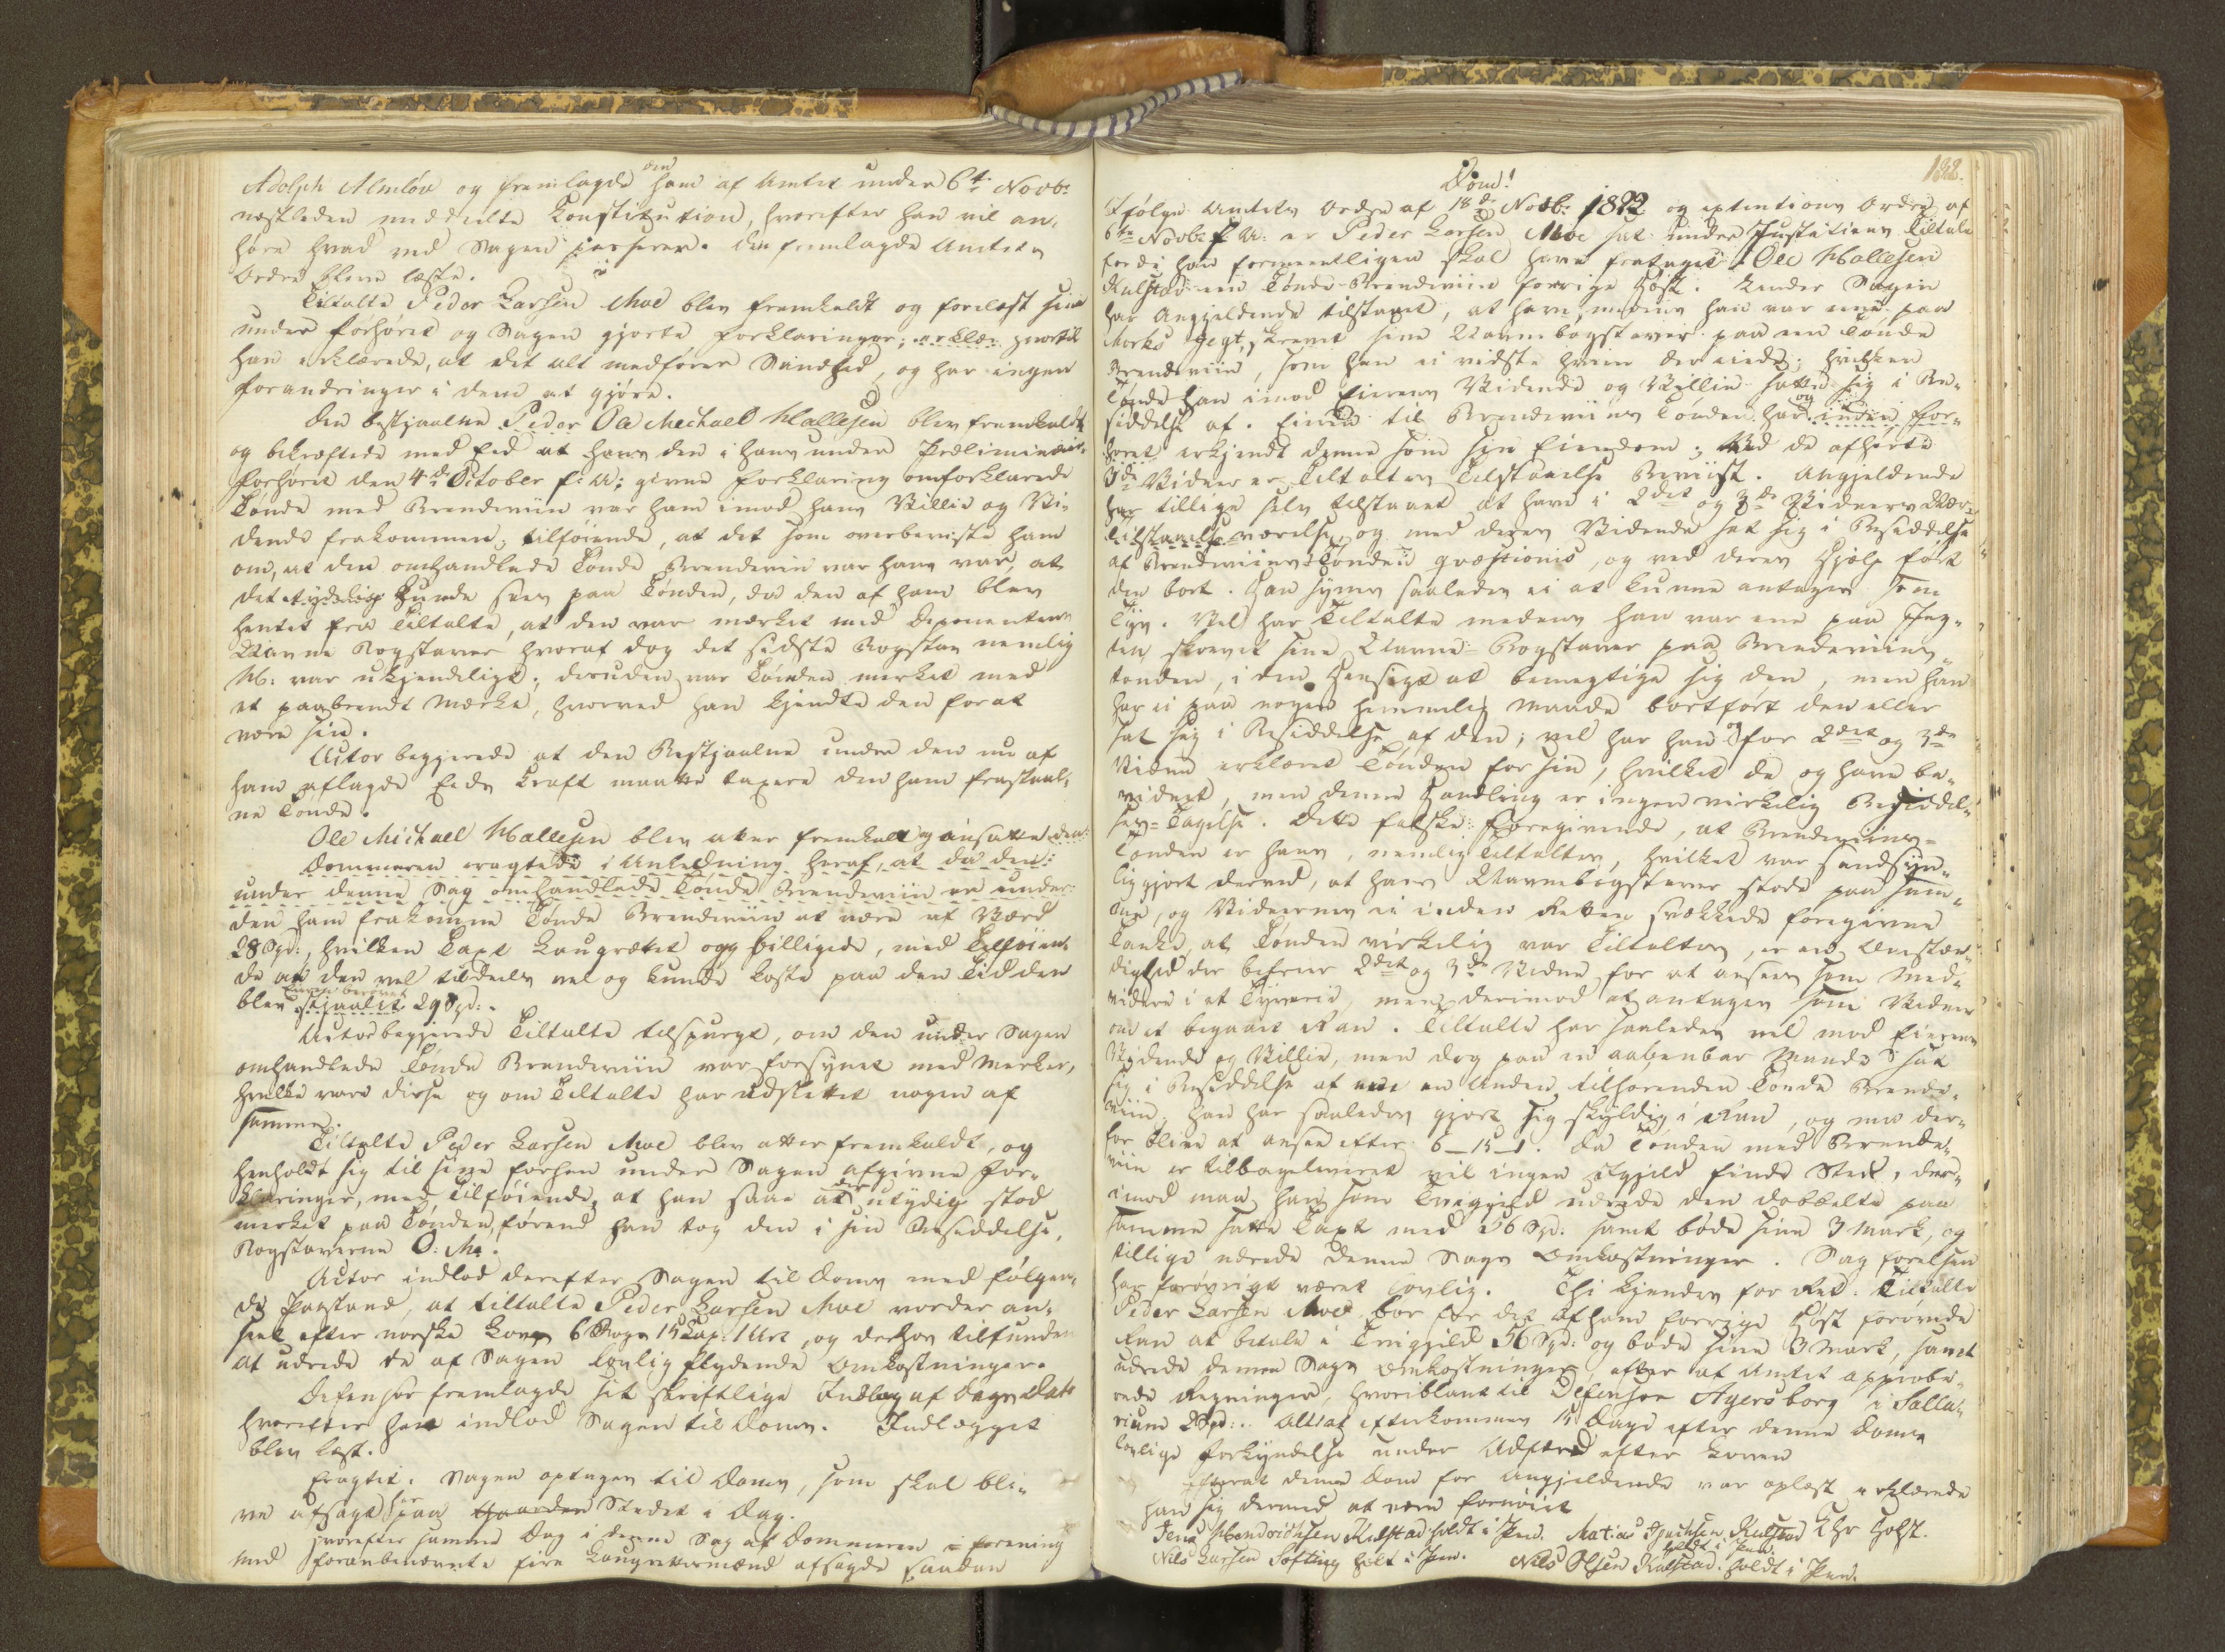 Adolph Almlöv og fremlagde den ham af Amtet under 6te Novbr
næstleden meddeelte Constitution, hvorefter han vil an-
høre hvad ved Sagen passerer. Den fremlagde Amtets
Ordre blev læste.
Tiltalte Peder Larsen Moe blev fremkaldt og forelæst sine
under Forhöret og Sagen gjorte Forklaringer; hvortil
han erklærede, at det alt medförer Sandhed, og har ingen
Forandringer i dem at gjöre.
Den bestjaalne Peder Ole Michael Hallesen blev fremkaldt
og bekræftede med Eed at hans den i hans under Præliminair-
forhöret den 4de October f: A: givne Forklaring omforklarede
Tönde med Brendeviin var ham imod hans Villie og Vi-
dende frakommen, tilföiende, at det som overbeviste ham
om, at den omhandlede Tönde Brendeviin var hans var, at
det tydelig kunde sees paa Tönden, da den af ham blev
hentet fra Tiltalte, at den var mærket med Deponentens
Navne Bogstaver hvoraf dog det sidste Bogstav nemlig
H: var ukjendeligt; desuden var Tönden merket med
et paabrendt Mærke, hvorved han kjendte den for at
være sin.
Actor begjerede at den Bestjaalne under den nu af
ham aflagde Eeds Kraft maatte taxere den ham frastaal-
ne Tönde.
Ole Michael Hallesen blev atter fremkaldt og ansatte den
Dommeren eragtede i Anledning heraf, at da den
under denne Sag omhandlede Tönde Brendeviin er under
den ham frakomne Tönde Brendeviin at være af Værd
28 Spd:, hvilken Taxt Laugrettet og billigede, med Tilföien-
de at den vel tildeels vel og kunde koste paa den Tid den
blev Eieren berövet stjaalet 29 Spd:.
Actor begjerede Tiltalte tilspurgt, om den under Sagen
omhandlede Tönde Brendeviin var forsynet med Merker,
hvilke vare disse og om Tiltalte har udslettet nogen af
samme.
Tiltalte Peder Larsen Moe blev atter fremkaldt, og
henholdt sig til sine forhen under Sagen afgivne For-
klaringer, med Tilföiende, at han saae at der utydelig stod
merket paa Tönden, förend han tog den i sin Besiddelse,
Bogstaverne O: M.
Actor indlod derefter Sagen til Doms med fölgen-
de Paastand, at tiltalte Peder Larsen Moe vorder an-
seet efter norske Lovs 6 Bogs 15 Cap: 1 Art, og derhos tilfunden
at udrede de af Sagen lovlig flydende Omkostninger.
Defensor fremlagde sit skriftlige Indlæg af Dags Dato
hvorefter han indlod Sagen til Doms. Indlægget
blev læst.
Eragtet: Sagen optages til Doms, som skal bli-
ve afsagt her paa Gaarden Stedet i Dag.
Hvorefter samme Dag i denne Sag af Dommeren i Forening
med foranbenævnte fire Laugrettesmænd afsagde saadan
132.
Dom!
Ifölge Amtets Ordre af 18de Novbr 1822 og extentions Ordre af
6te Novbr f. A: er Peder Larsen Moe sat under Justitiens Tiltale
fordi han formeentligen skal have frataget Ole Hallesen
Kulstad een Tönde Brendeviin forrige Höst. Under Sagen
har Angjeldende tilstaaet, at have, medens han var ene paa
Morks Jegt, skrevet sine Navnebogstaver paa een Tönde
Brendeviin, som han ei vidste hvem der eiede; hvilken
Tönde han imod Eierens Vidende og Villie satte sig i Be-
siddelse af. Eieren til Brendeviins Tönden har og inden For-
höret erkjendt denne som sin Eiendom; Ved de afhörte
3de Vidner er Tiltaltes Tilstaaelse Beviist. Angjeldende
har tillige selv tilstaaet at have i 2det og 3de Vidners Nær-
Tilstaaelse værelse, og med deres Vidende sat sig i Besiddelse
af Brendeviins Tönden qvæstionis, og ved deres Hjelp fört
den bort. Han synes saaledes ei at kunne antages som
Tyv. Vel har Tiltalte medens han var ene paa Jeg-
ten skrevet sine Navne-Bogstaver paa Brendeviins
tönden, i den Hensigt at bemegtige sig den, men han
har ei paa nogen hemmelig Maade bortfört den eller
sat sig i Besiddelse af den; vel har han og for 2det og 3de
Vidne erklæret Tönden for sin, hvilket de og have be-
vidnet, men denne Handling er ingen virkelig Besiddel-
ses-Tagelse. Dette falske Foregivende, at Brendeviins-
Tönden er hans, nemlig Tiltaltes, hvilket var sandsyn-
liggjort derved, at hans Navnebogstaver stode paa sam-
me, og Vidnernes ei inden Retten svækkede foregivne
Tanke, at Tönden virkelig var Tiltaltes, er en Omstæn-
dighed der befrier 2det og 3de Vidne for at ansees som Med-
videre i et Tyverie, men derimod at antages som Vidner
om et begaaet Ran. Tiltalte har saaledes vel mod Eierens
Vidende og Villie, men dog paa en aabenbar Maade sat
sig i Besiddelse af en Anden tilhörende Tönde Brende-
viin, han har saaledes gjort sig skyldig i Ran, og maa der-
for blive at ansee efter 6-15-1. Da Tönden med Brende-
viin er tilbageleveret vil ingen Igjeld finde Sted, der-
imod maa han som Tvegjeld udrede den dobbelte paa
samme satte Taxt med 56 Spd. samt böde sine 3 Mark, og
tillige udrede denne Sags Omkostninger. Sagförelsen
har forövrigt været lovlig. Thi kjendes for Ret: Tiltalte
Peder Larsen Moe bör for det af ham forrige Höst forövede
Ran at betale i Tvegjeld 56 Spd: og böde sine 3 Mark, samt
udrede denne Sags Omkostninger, efter af Amtet approbe-
rede Regninger, hvoriblant til Defensor Agersborg i Salla-
rium 2 Spd:. Alt at efterkommes 15 Dage efter denne Doms
lovlige Forkyndelse under Adfærd efter Loven
Efterat denne Dom for Angjeldende var oplæst erklærede
han sig dermed at være fornöiet
Jens Hendrichsen Kulstad holdt i Pen. Matias Isachsen Kulstad holdt i Pen. Chr Holst.
Nils Larsen Softing holt i Pen. Nils Olsen Kulstad. holdt i Pen.